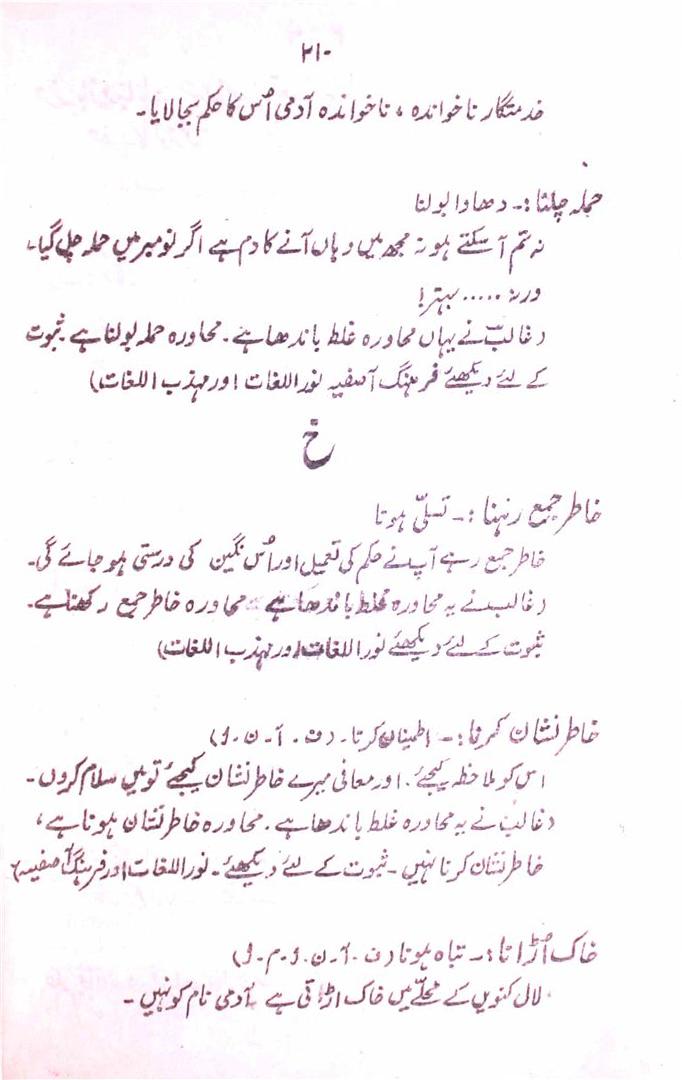 ۲۱۰
خدمتگار ناخواندہ ، ناخواندہ آدمی اُس کا حکم بجا لایا۔
حملہ چلنا :۔ دھاوا بولنا
نہ تم آ سکتے ہو نہ مجھ میں وہاں آنے کا دم ہے اگر نومبر میں حملہ چل گیا۔
ورنہ ..... بہتر!
(غالبؔ نے یہاں محاورہ غلط باندھا ہے۔ محاورہ حملہ بولنا ہے۔ ثبوت
کے لئے دیکھئے فرہنگ آصفیہ نوراللغات اور مہذب اللغات)
خ
خاطر جمع رہنا :۔ تسلّی ہونا
خاطر جمع رہے آپ نے حکم کی تعمیل اور اُس نگین کی درستی ہو جائے گی۔
(غالب نے یہ محاورہ غلط باندھا ہے محاورہ خاطر جمع رکھنا ہے۔
ثبوت کے لئے دیکھئے نوراللغات اور مہذب اللغات)
خاطر نشان کرنا :۔ اطمینان کرنا۔ (ف۔ آ۔ ن۔ و)
اس کو ملاحظہ کیجئے۔ اور معانی میرے خاطر نشان کیجئے تو میں سلام کروں۔
(غالبؔ نے یہ محاورہ غلط باندھا ہے۔ محاورہ خاطر نشان ہونا ہے،
خاطر نشان کرنا نہیں۔ ثبوت کے لئے دیکھئے۔ نوراللغات اور فرہنگ آصفیہ)
خاک اُڑانا :۔ تباہ ہونا (ف۔ آ۔ ن۔ و۔ م۔ و)
لال کنویں کے محلّے میں خاک اڑاتی ہے ۔ آدمی نام کو نہیں۔